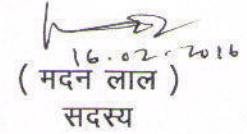 16.02.2016
( मदन लाल )
सदस्य